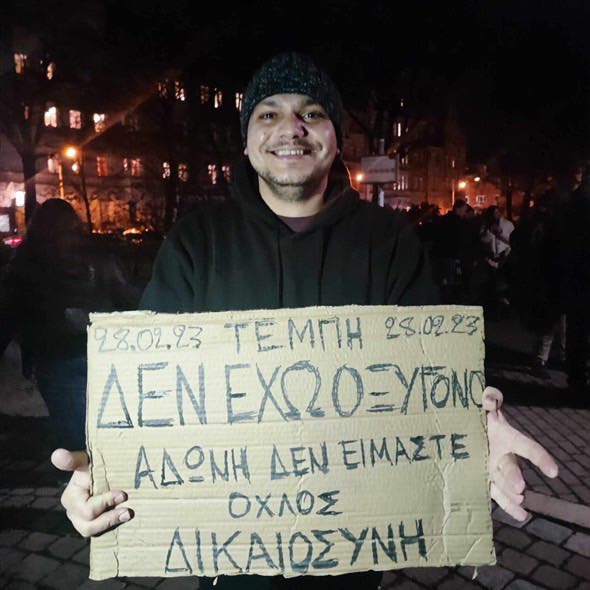 28.02.23 ΤΕΜΠΗ 28.02.23
ΔΕΝ ΕΧΩ ΟΞΥΓΟΝΟ
ΑΔΩΝΗ ΔΕΝ ΕΙΜΑΣΤΕ
ΟΧΛΟΣ
ΔΙΚΑΙΟΣΥΝΗ